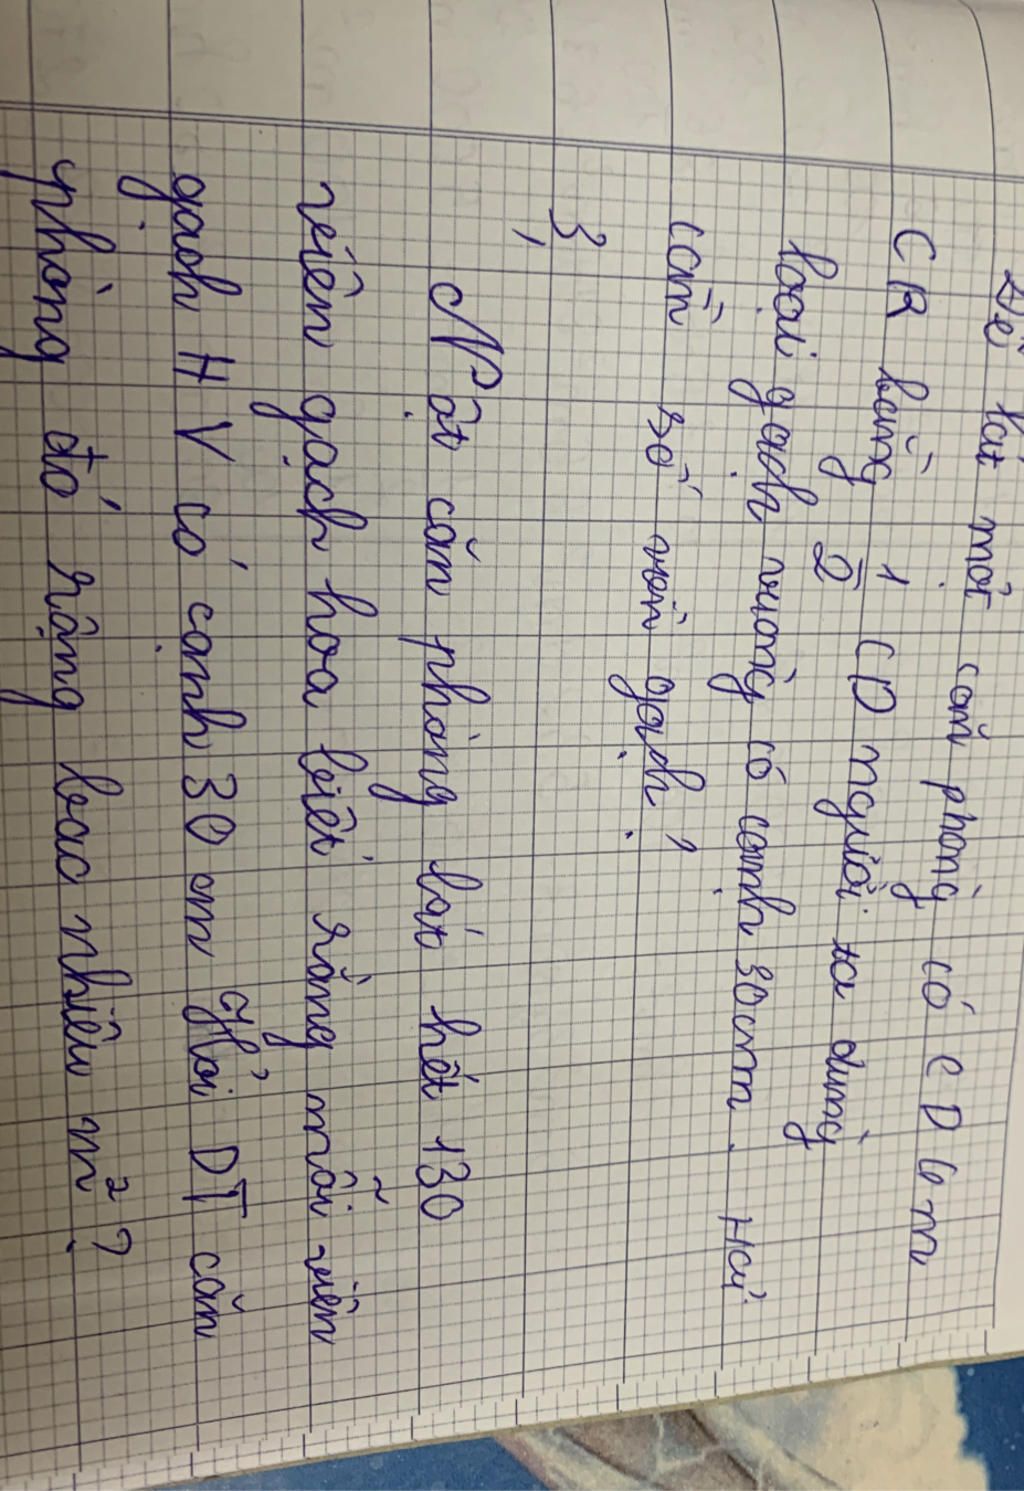 Để lát một căn phòng có CD 6m
CR bằng 1/2 CD người ta dùng
loại gạch vuông có cạnh 30cm. Hỏi
cần số viên gạch?
3,
Một căn phòng lát hết 130
viên gạch hoa biết rằng mỗi viên
gạch HV có cạnh 30 cm Hỏi DT căn
phòng đó rộng bao nhiêu m²?